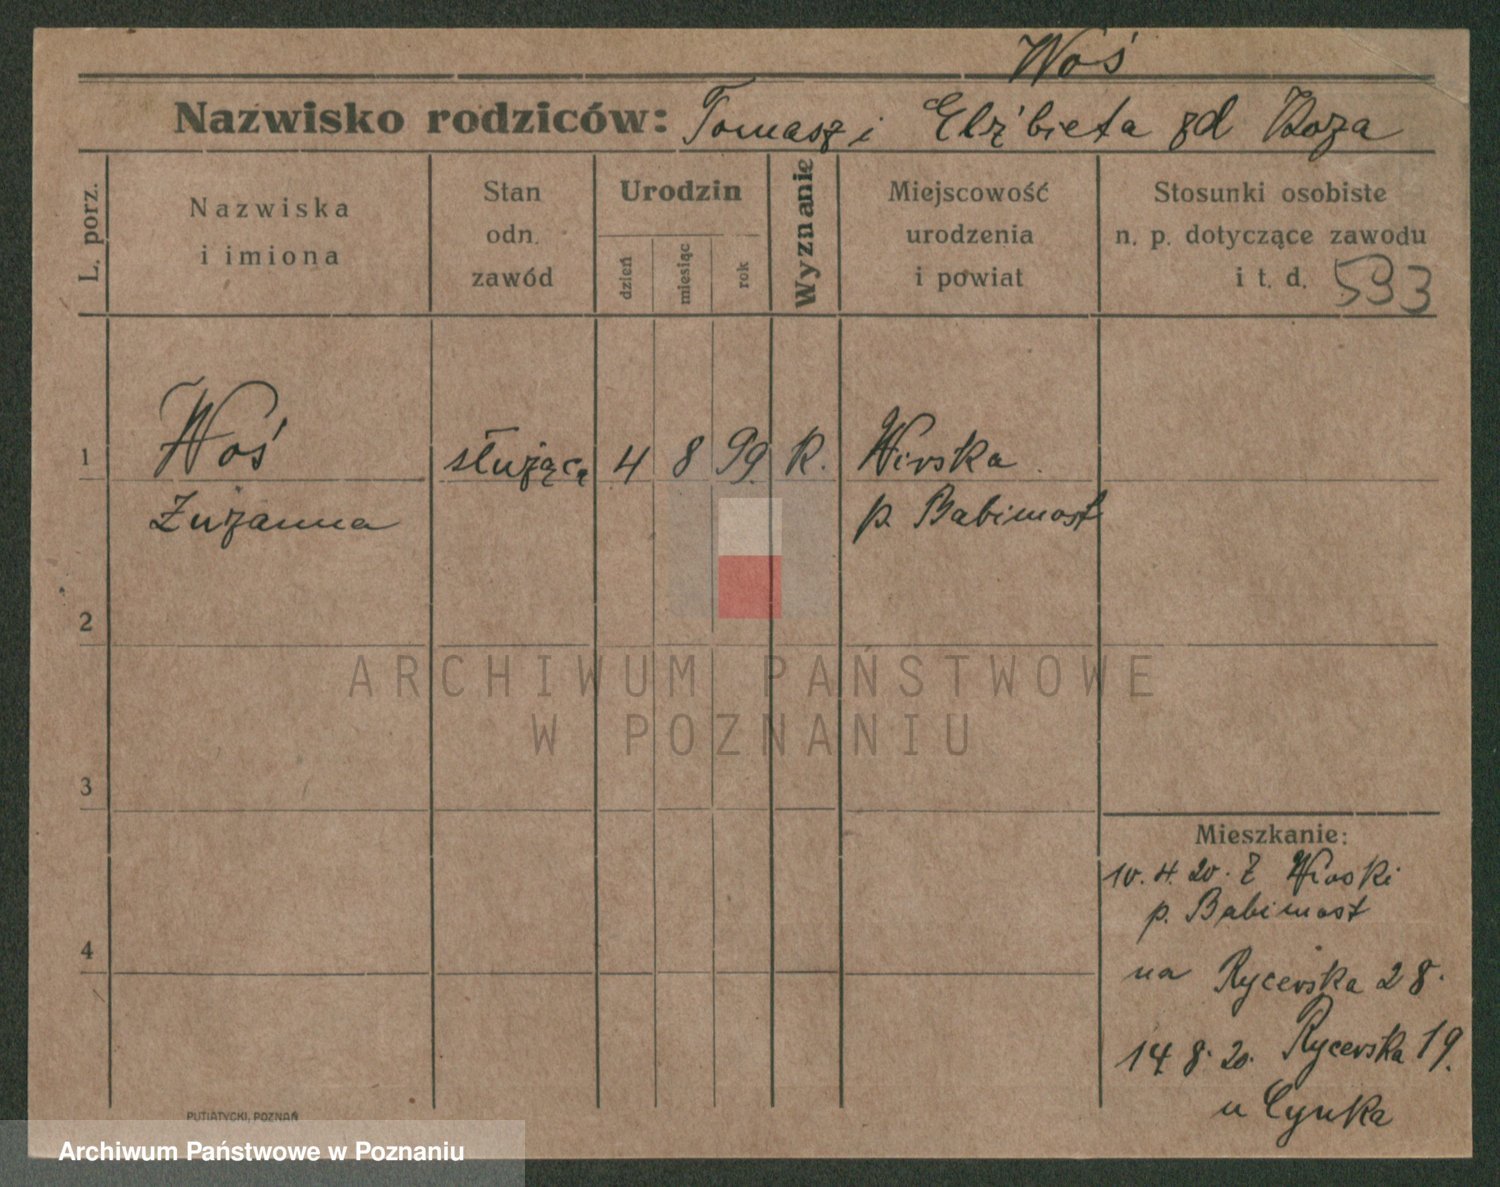 Woś
Nazwisko rodziców: Tomasz i Elżbieta zd Koza
L. porz.
Nazwiska
i imiona
Stan
odn.
zawód
Urodzin
dzień
miesiąc
rok
Wyznanie
Miejscowość
urodzenia
i powiat
Stosunki osobiste
n. p. dotyczące zawodu
i t. d. 593
1 Woś służąca 4 8 99. K.
Zuzanna p. Babimost
2
ARCHIWUM PAŃSTWOWE
W POZNANIU
3
Mieszkanie:
10. 4. 20. Z
p. Babimost
4
na Rycerska 28.
14. 8. 20. Rycerska 19.
u Cynka
PUTIATYCKI, POZNAŃ
Archiwum Państwowe w Poznaniu